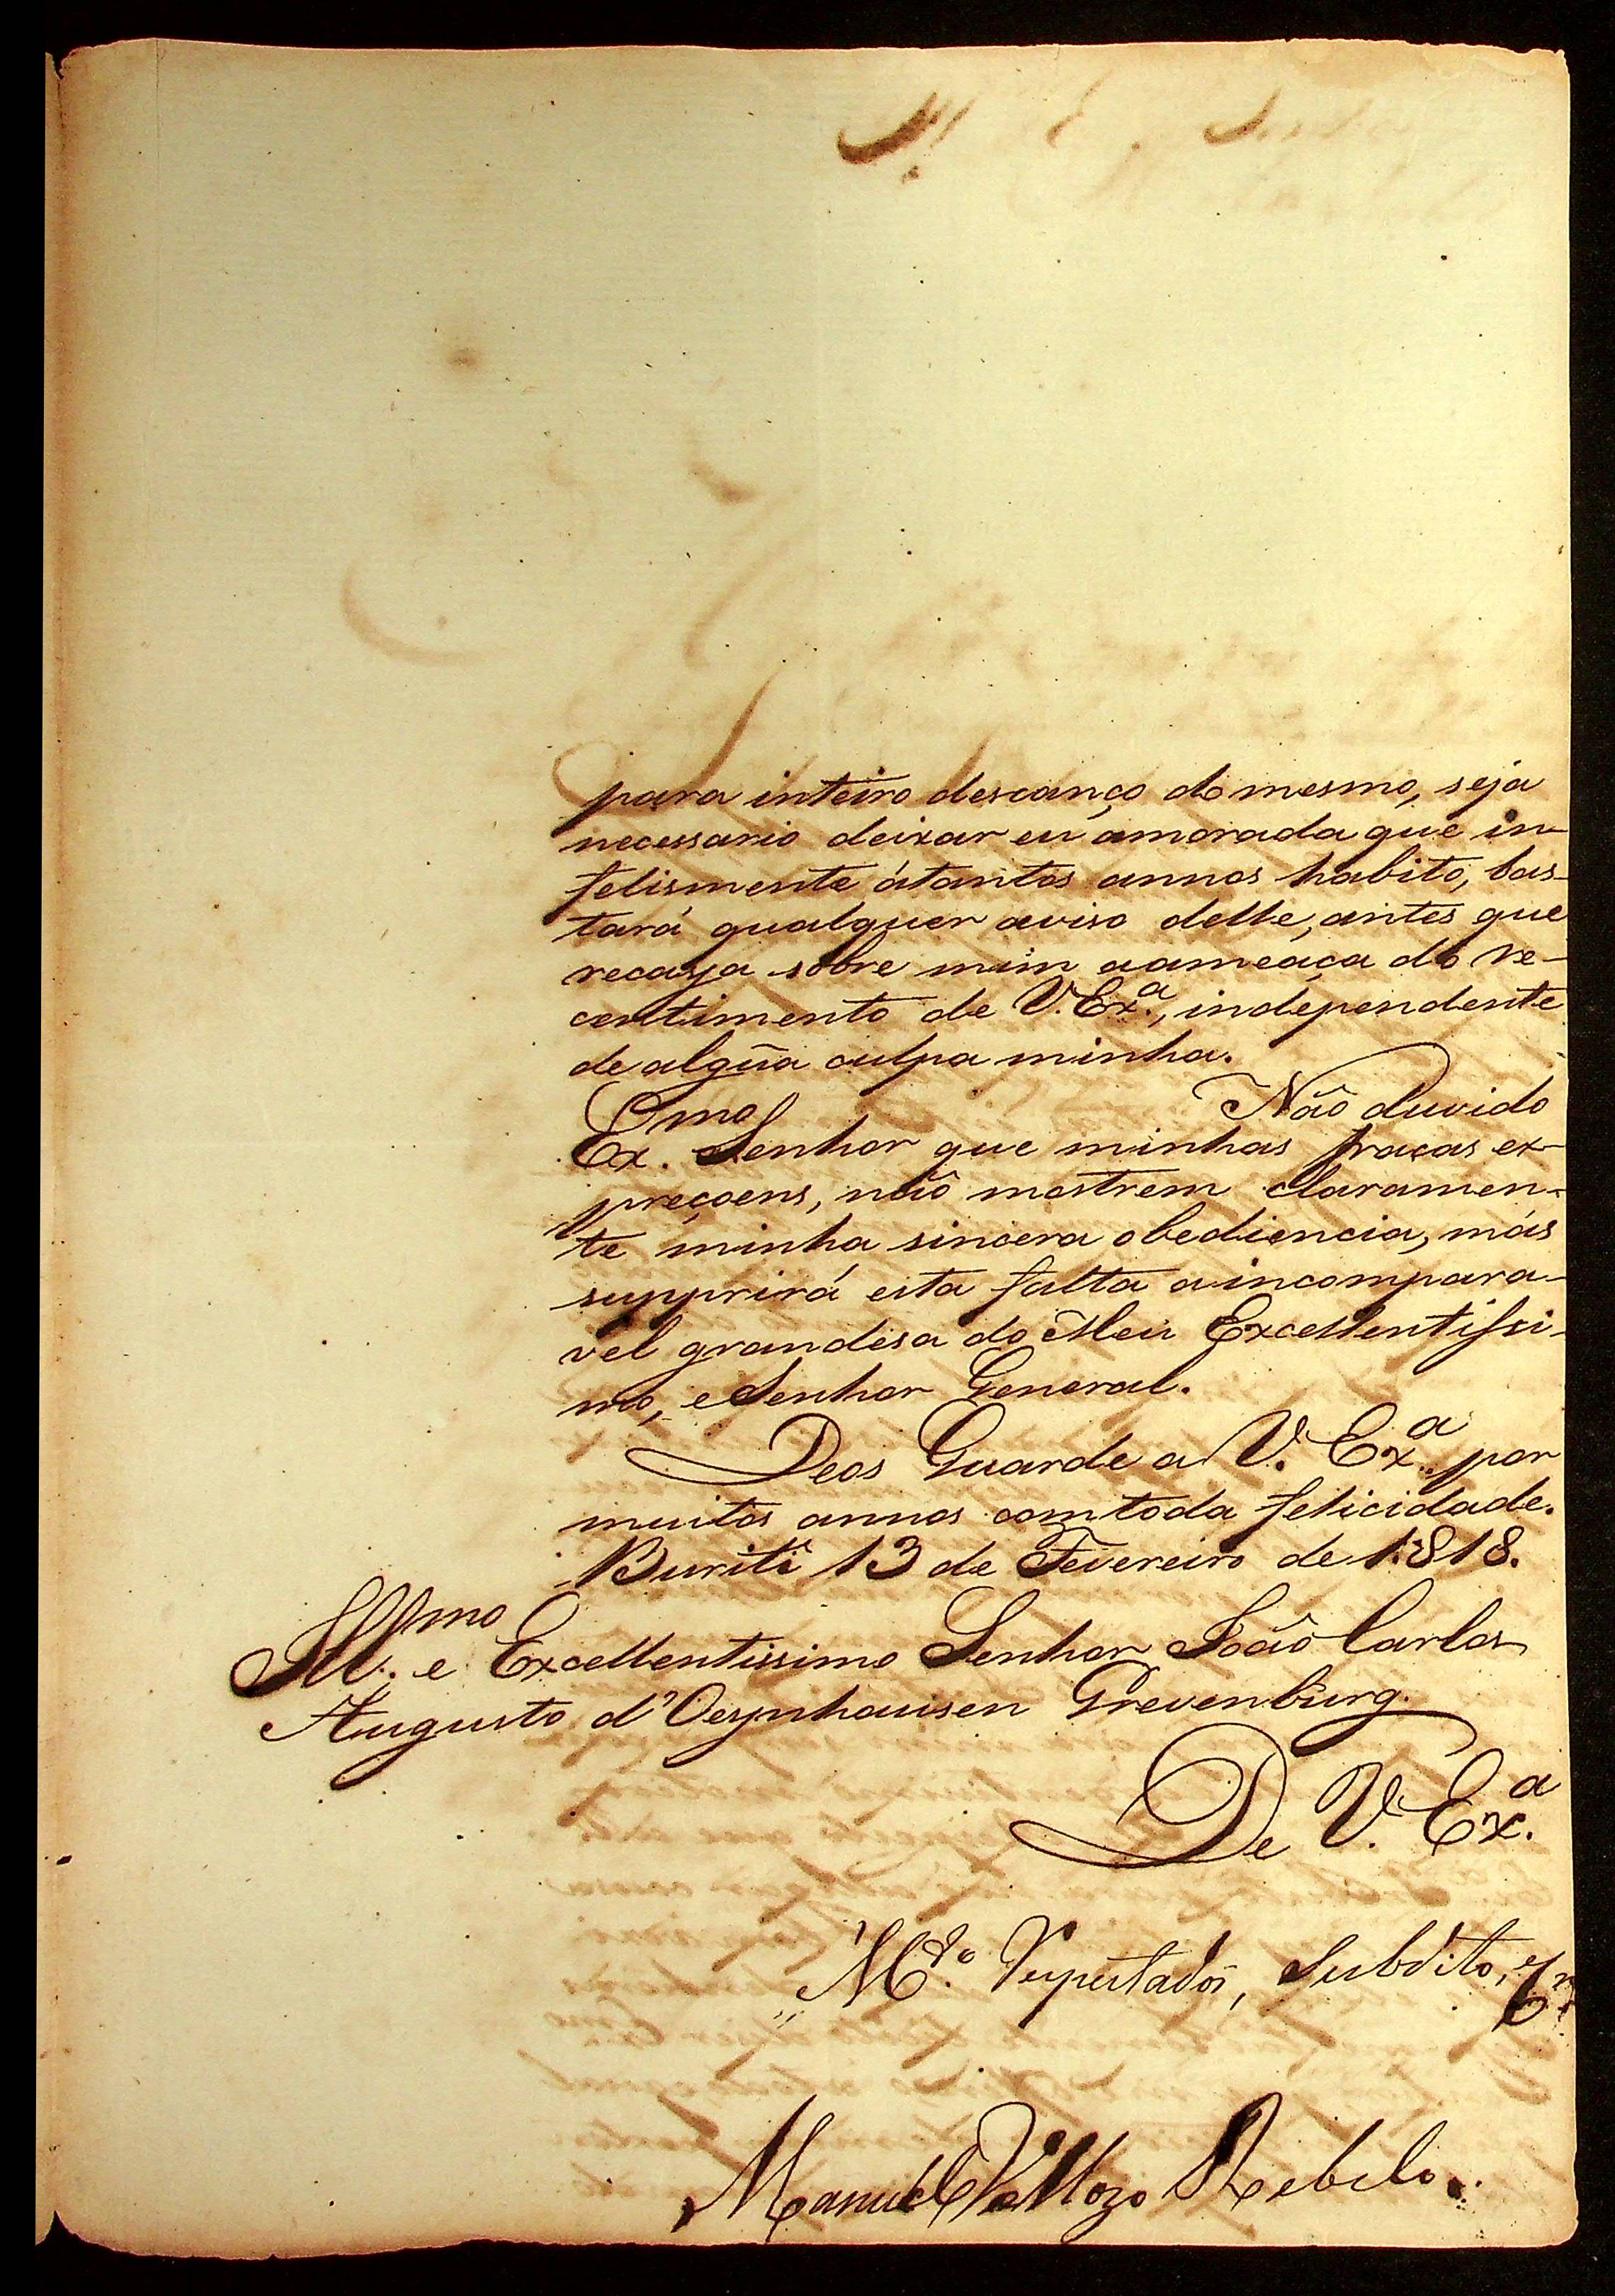 para inteiro descanço do mesmo, seja
necessario deixar eu amorada que in-
felismente átantos annos habito, bas-
tará qualquer aviso delle, antes que
recaya sobre mim aameaça do re-
centimento de V. Ex.ª, independente
de algũa culpa minha.
Não duvido
Ex.mo Senhor que minhas fracas ex-
preçoens, não mostrem claramen-
te minha sincera obediencia, más
supprirá esta falta aincompara-
vel grandesa do Meu Excellentissi-
mo, e Senhor General.
Deos Guarde a V. Ex.ª por
muitos annos comtoda felicidade.
Buriti 13 de Fevereiro de 1818.
Ill.mo e Excellentissimo Senhor João Carlos
Augusto d'Oeynhausen Grevenburg.
De V. Ex.ª
M.to subdito, e
Manuel Vellozo Rebelo